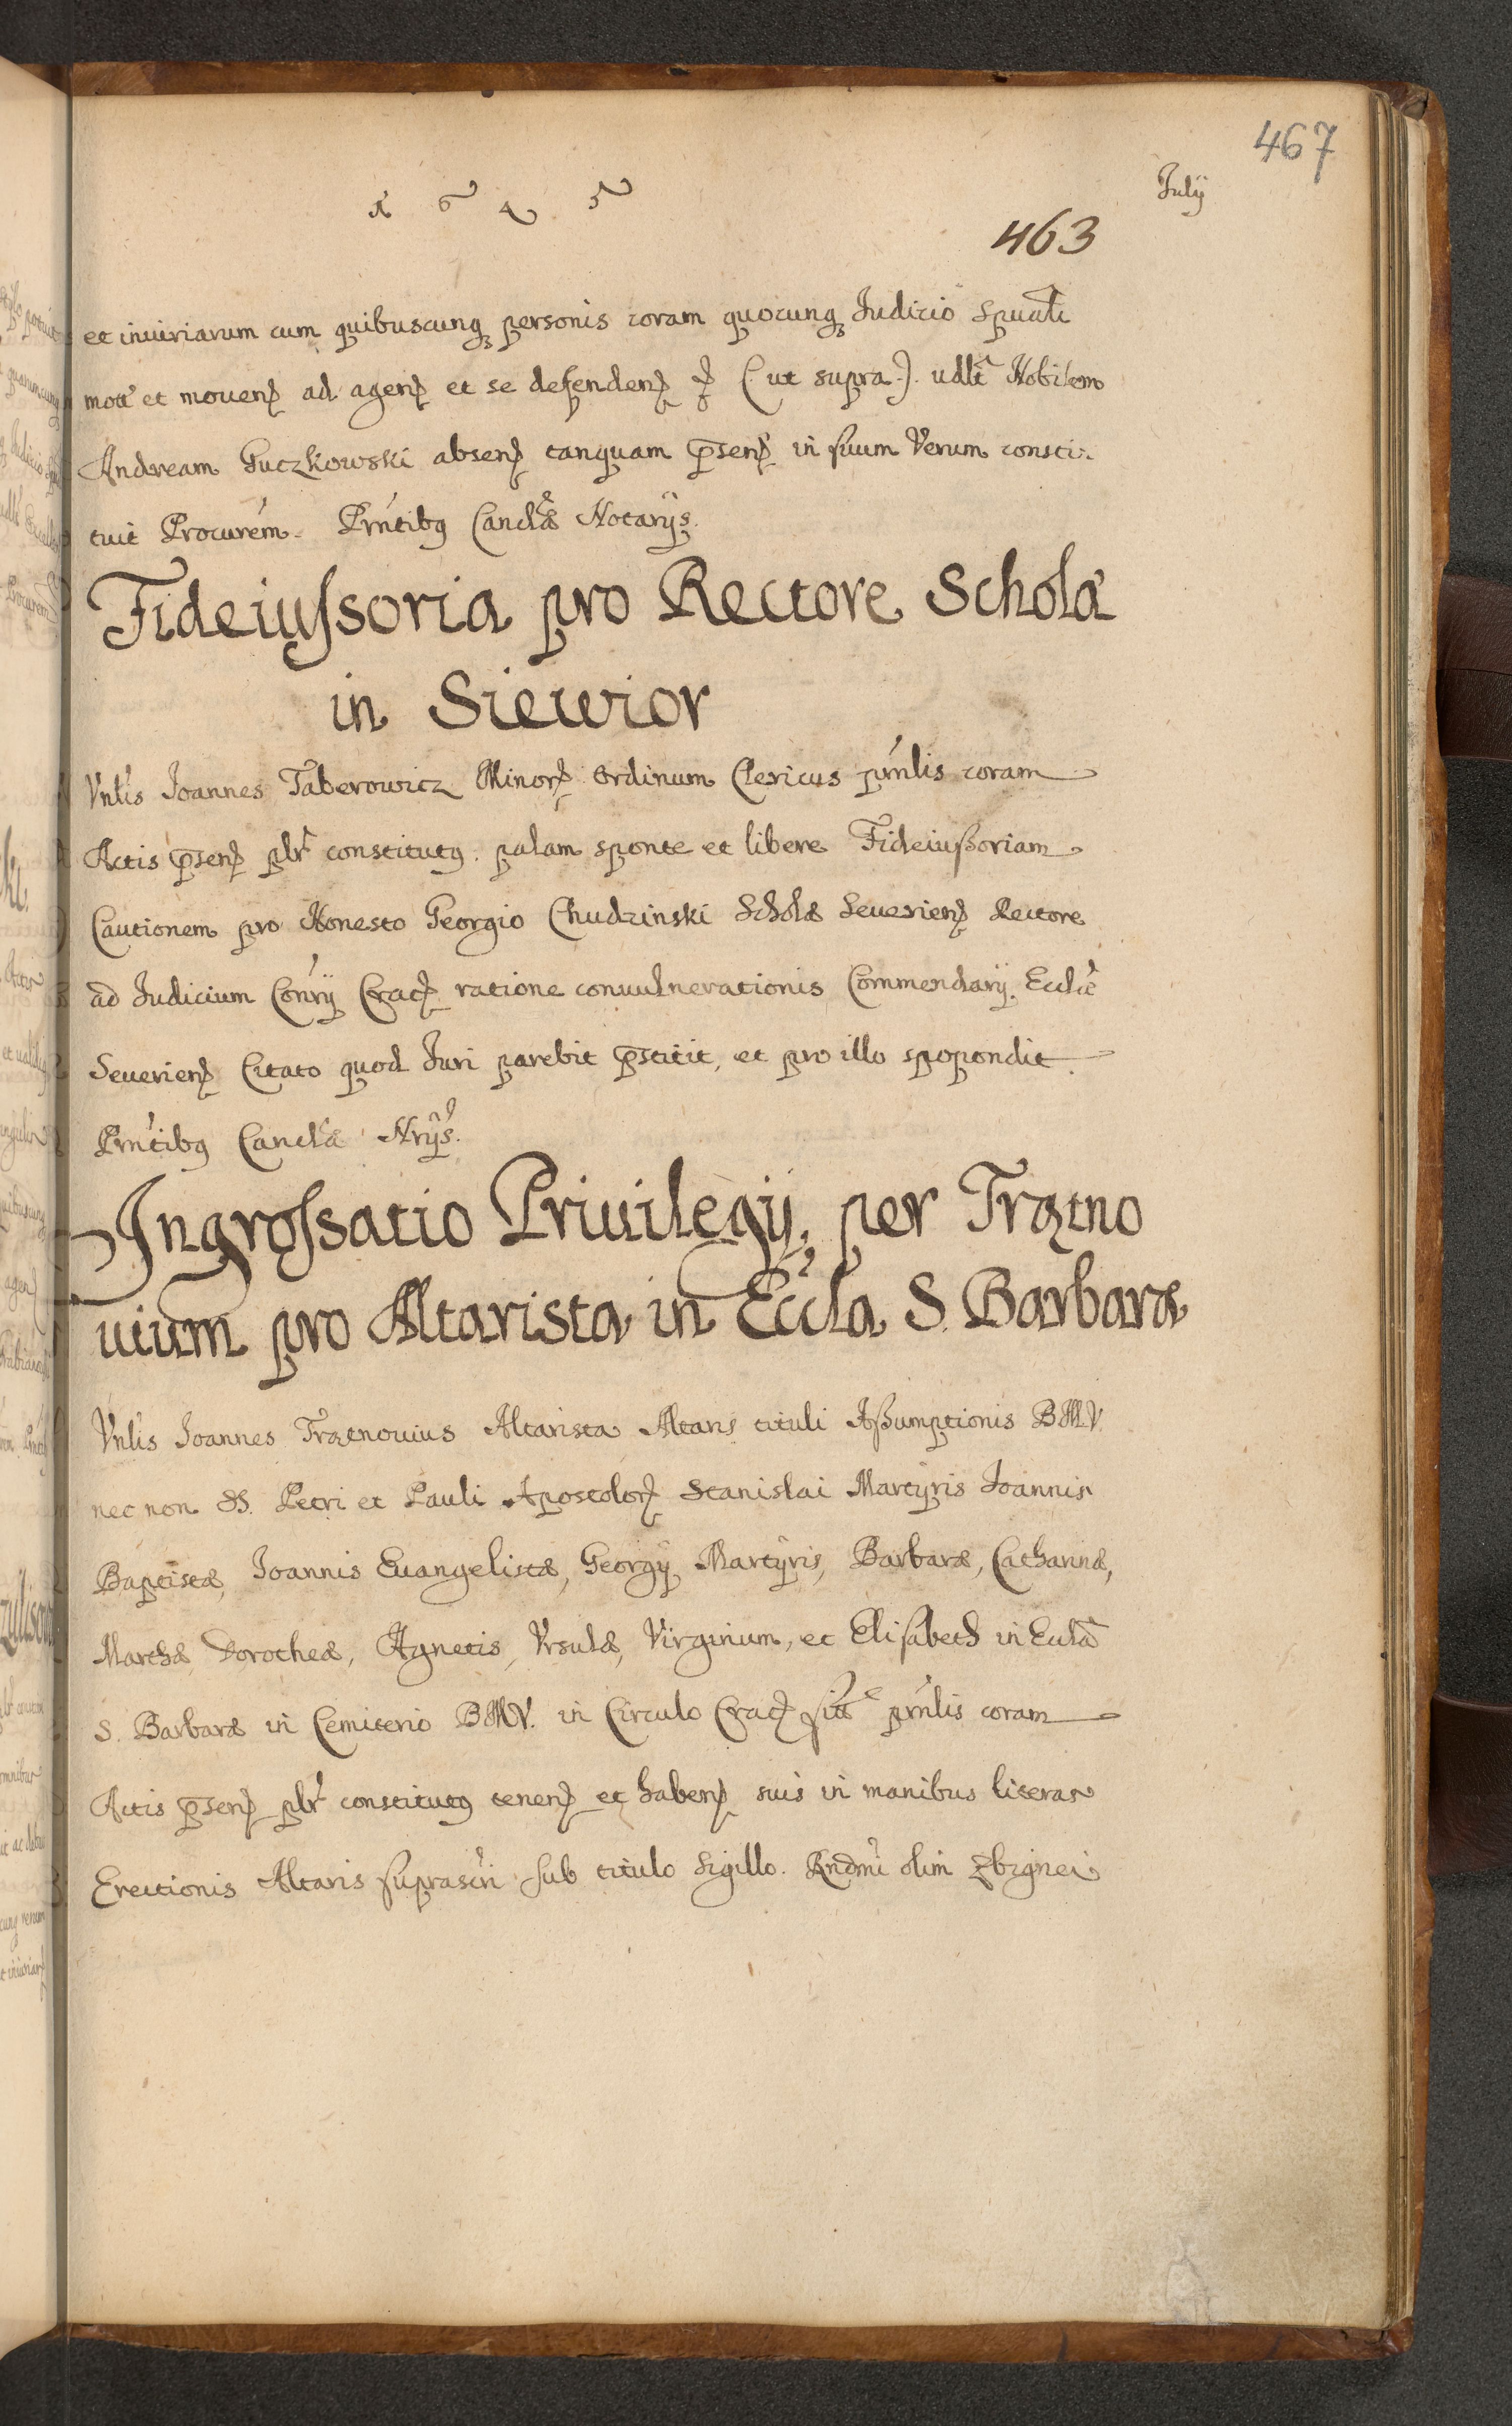 467
July
1 6 4 5
463
et iniuriarum cum quibuscunq personis coram quocunq Iudicio Spuali
mota et mouen ad agen et se defenden (ut supra). udlt Nobilem
Andream Guczkowski absen tanquam psen in suum Verum consti-
tuit Procurem. Pntibq Canclæ Notarijs.
Fideiussoria pro Rectore Schola
in Siewior
Vnlis Ioannes Taberowicz Minor Ordinum Clericus prnlis coram
Actis psen plr constitutq. palam sponte et libere Fideiussoriam
Cautionem pro Honesto Georgio Chudzinski Scholæ Seuerien Rectore
ad Iudicium Conrij Crac ratione conuulnerationis Commendarij Eccliæ
Seuerien Citato quod Iuri parebit pstitit, et pro illo spopondit.
Prntibq Canclæ Nrijs.
Ingrossatio Priuilegij, per Trzetno
uium pro Altarista in Eccla S. Barbaræ
Vnlis Ioannes Trzetnouius Altarista Altaris tituli Assumptionis B.M.V.
nec non SS. Petri et Pauli Apostolor Stanislai Martyris Ioannis
Baptistæ, Ioannis Euangelistæ, Georgij Martyris, Barbaræ, Catharinæ,
Marthæ Dorotheæ, Agnetis, Vrsulæ, Virginum, et Elisabeth in Eccla
S. Barbaræ in Cemiterio B.M.V. in Circulo Crac sitæ prnlis coram
Actis psen plr constitutq tenen et haben suis in manibus literas
Erectionis Altaris suprascri sub titulo Sigillo. Rndmi olim Zbignei